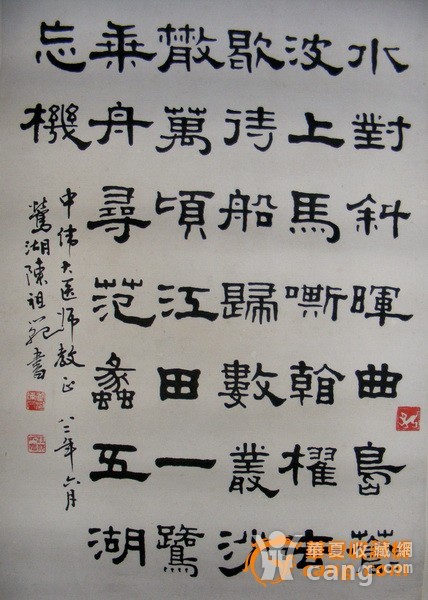 水對斜暉曲島蒼
波上馬嘶看櫂去
歇待船歸數叢沙
散萬頃江田一鷺
乘舟尋范蠡五湖
忘機
申伟大医师教正 八二年六月
鶯湖陳祖範書
華夏收藏網
cang.com